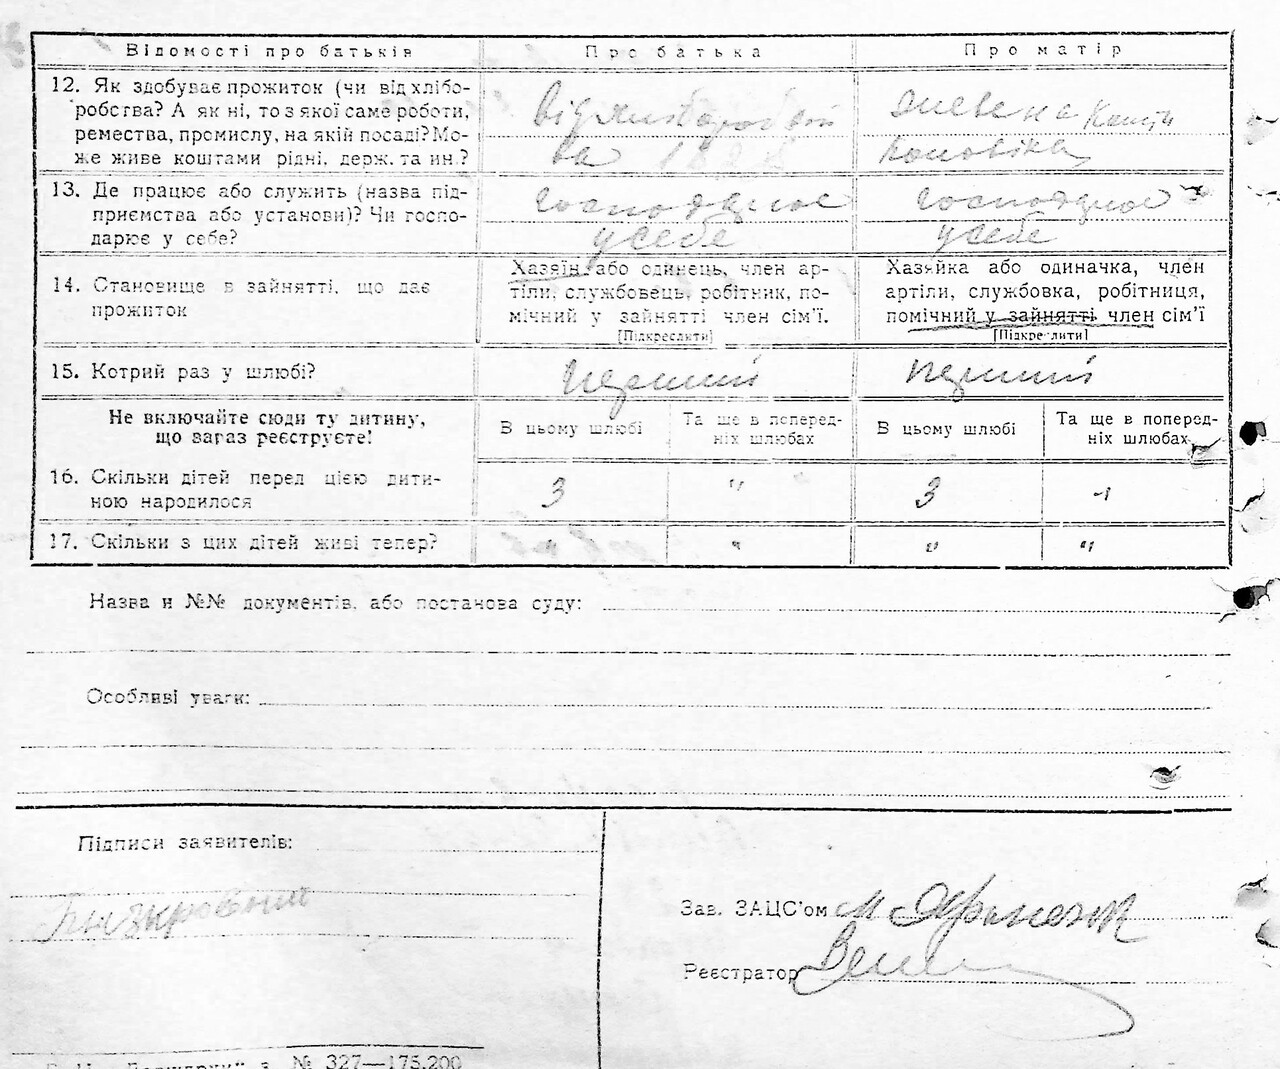 Відомості про батьків
Про батька
Про матір
12. Як здобуває прожиток (чи від хлібо-
робства? А як ні, то з якої саме роботи,
ремества, промислу, на якій посаді? Мо-
же живе коштами рідні, держ. та ин.?
від хліборобст
ва
живе на кошти
чоловіка
13. Де працює або служить (назва під-
приємства або установи)? Чи госпо-
дарює у себе?
господарює
у себе
господарює
у себе
14. Становище в зайнятті, що дає
прожиток
Хазяїн або одинець, член ар-
тіли, службовець, робітник, по-
мічний у зайнятті член сім'ї.
[Підкреслити]
Хазяйка або одиначка, член
артіли, службовка, робітниця,
помічний у зайнятті член сім'ї
[Підкреслити]
15. Котрий раз у шлюбі?
перший
перший
Не включайте сюди ту дитину,
що зараз реєструєте!
В цьому шлюбі
Та ще в поперед-
ніх шлюбах
В цьому шлюбі
Та ще в поперед-
ніх шлюбах
16. Скільки дітей перед цією дити-
ною народилося
3
"
3
"
17. Скільки з цих дітей живі тепер?
"
"
"
"
Назва и №№ документів, або постанова суду:
Особливі уваги:
Підписи заявителів:
Зав. ЗАЦС'ом
Реєстратор
№ 327—175.200